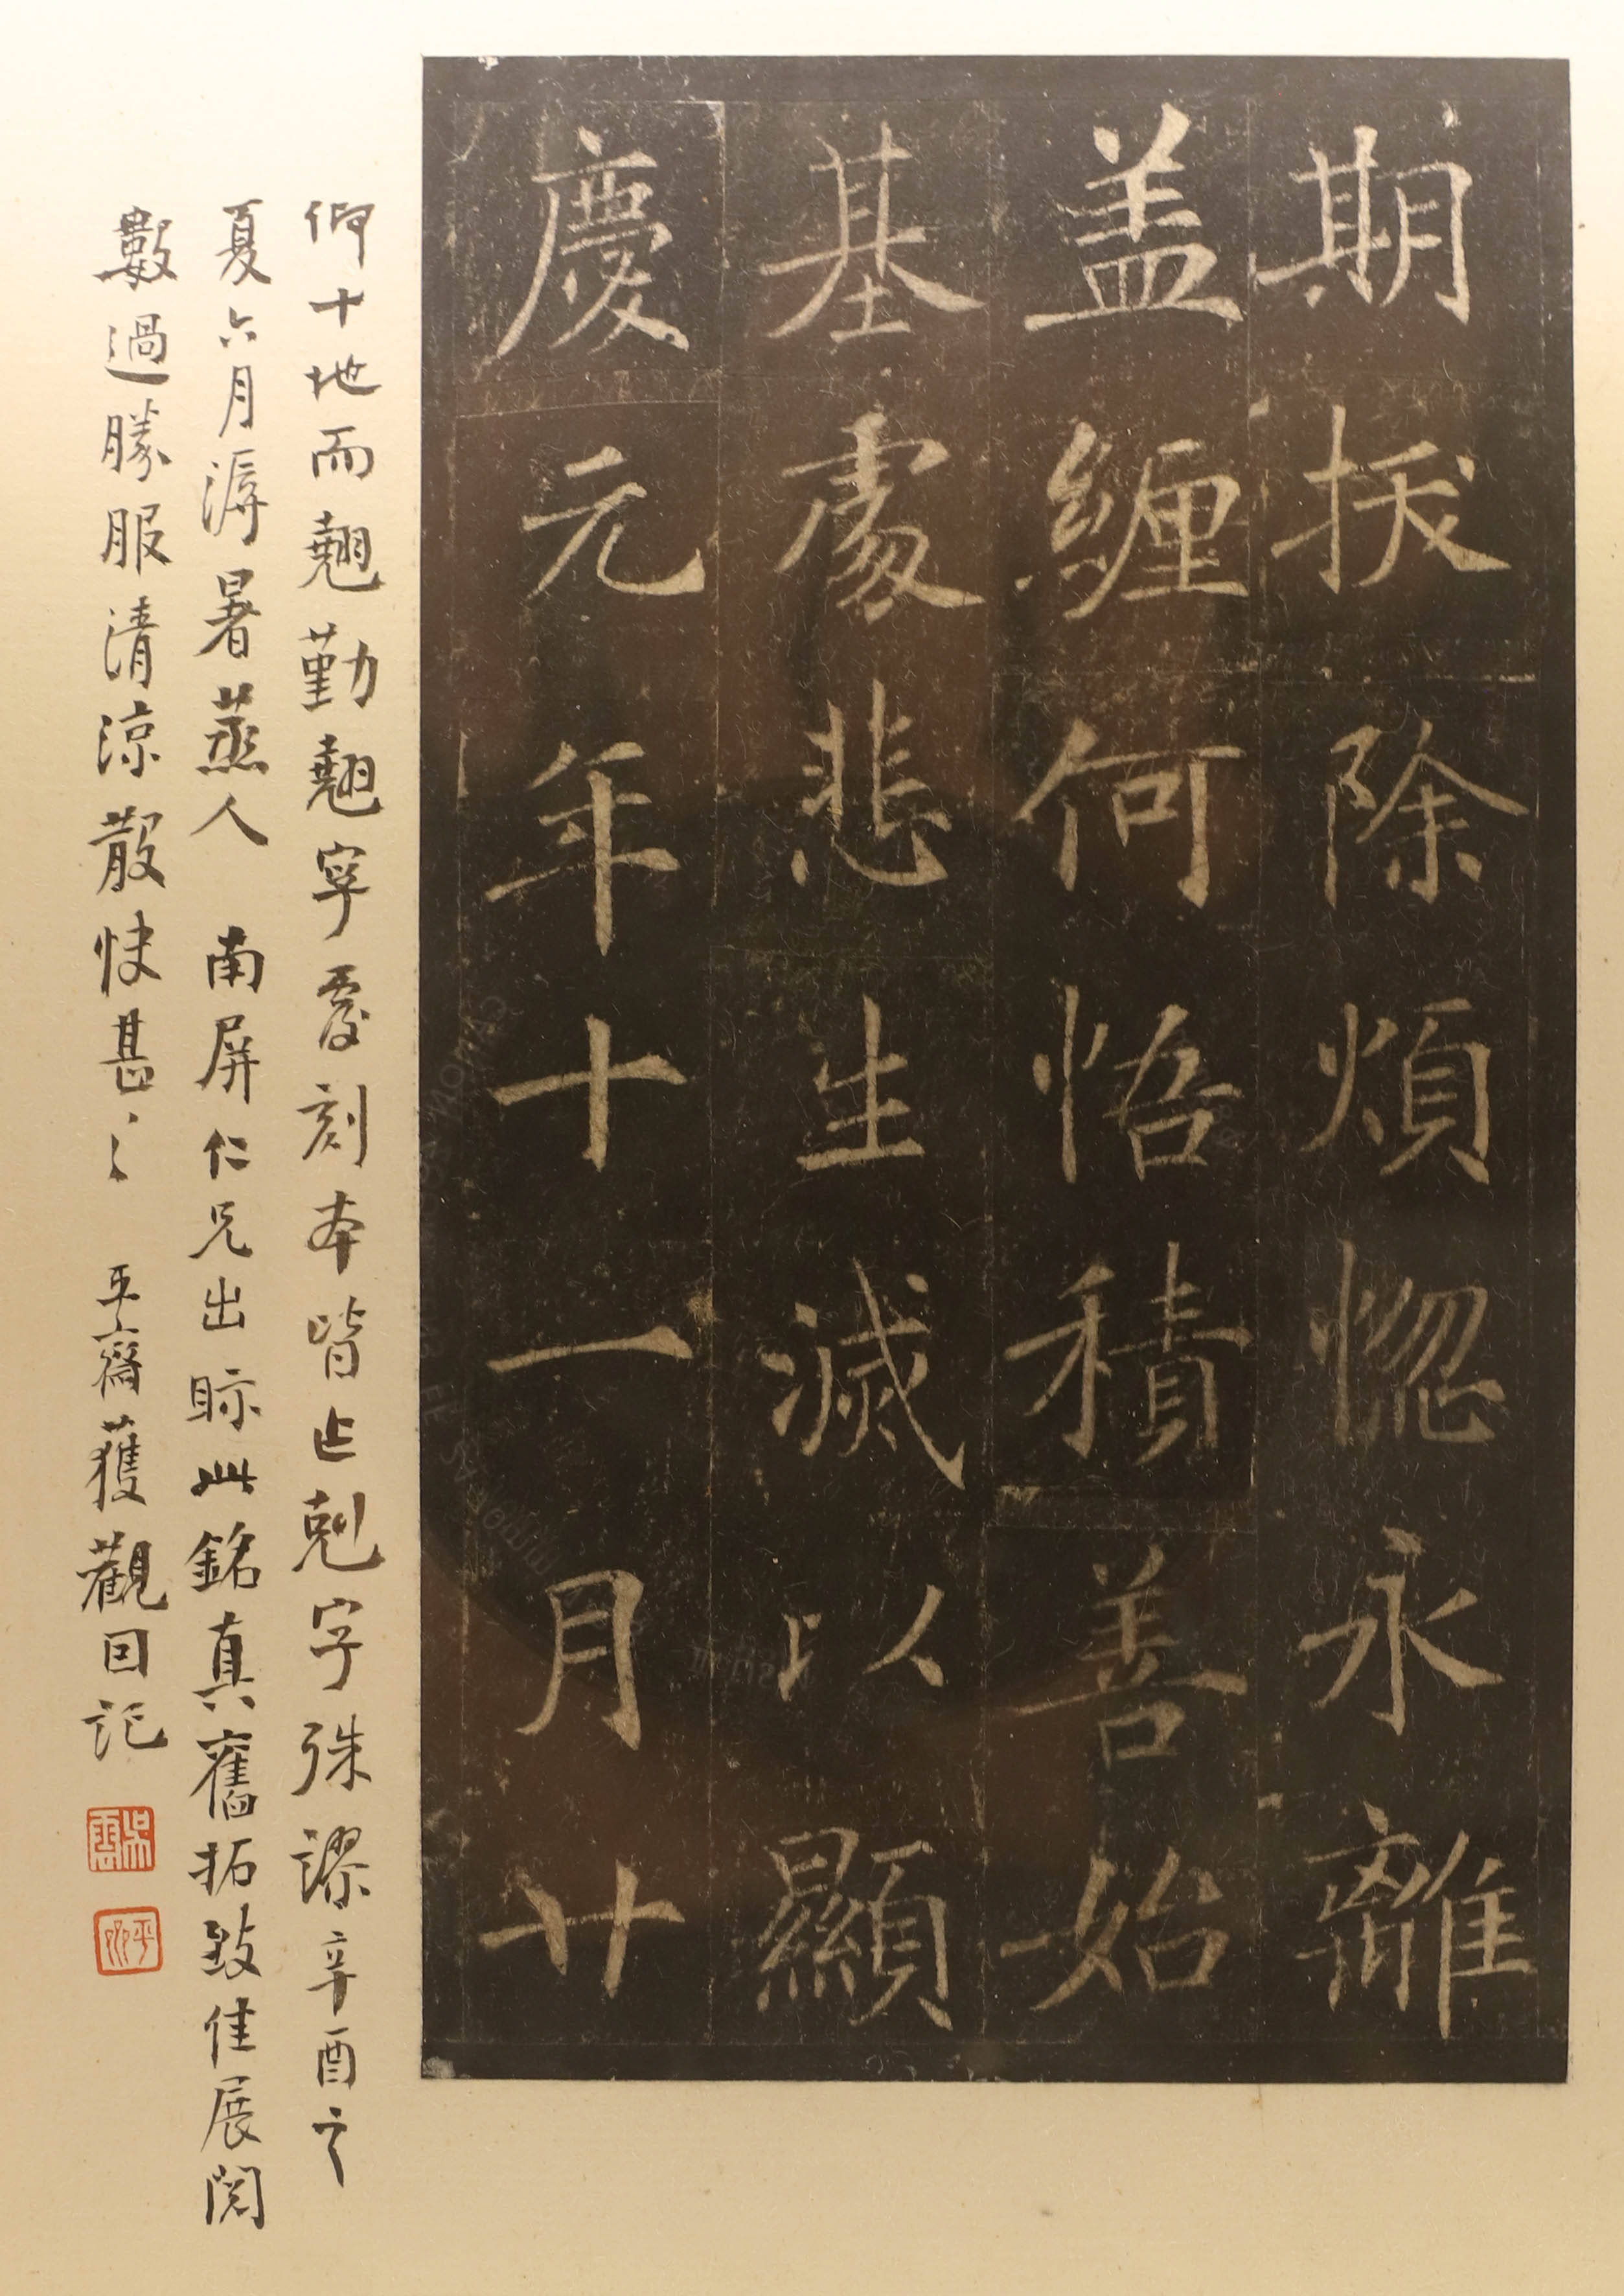 期拔除煩惚永離
盖纏何悟積善始
基處悲生滅以顯
慶元年十一月廿
仰十地而翹勤翹字處刻本皆止剋字殊謬辛酉之
夏六月溽暑蒸人 南屏仁兄出眎此銘真舊拓致佳展閱
數過勝服清涼散快甚〻 平齋獲觀因記
吳雲
平齋